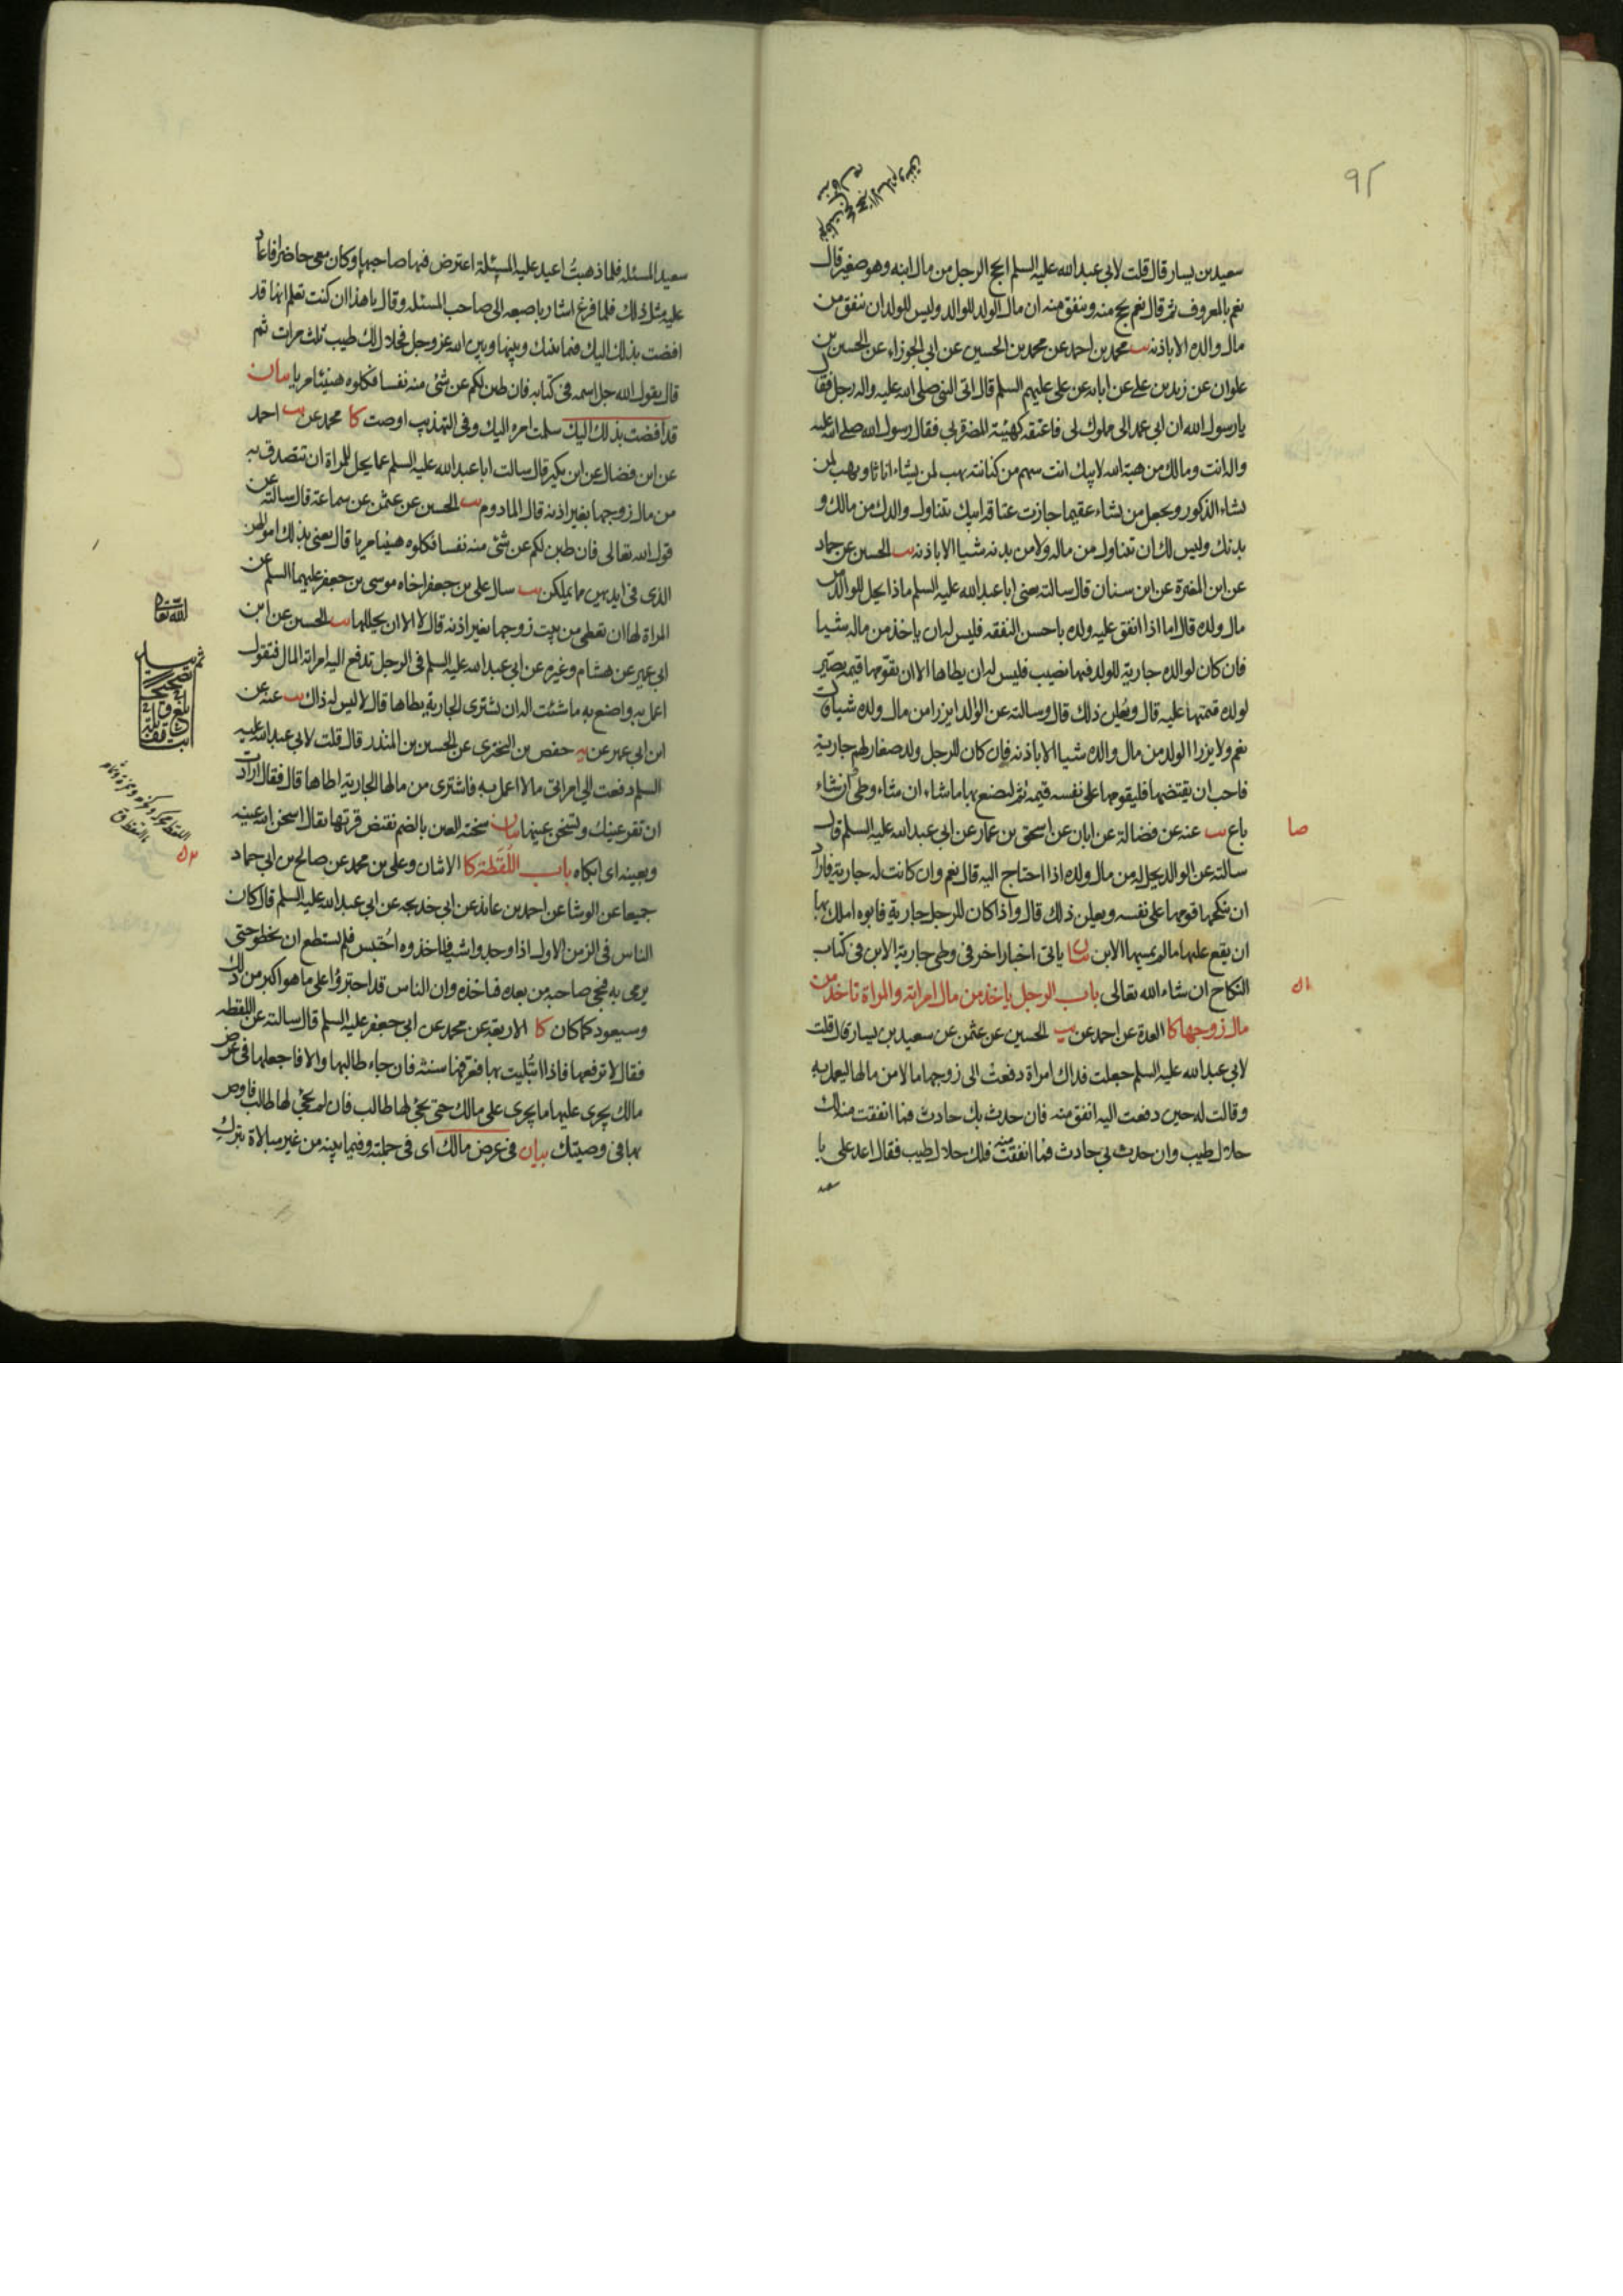 ٩٢
سعيد بن يسار قال قلت لابي عبد الله عليه السلم ايحج الرجل من مال ابنه وهو صغير قال
نعم بالمعروف ثم قال نعم يحج منه وينفق منه ان مال الولد للوالد وليس للولد ان ينفق من
مال والده الا باذنه يب محمد بن احمد عن محمد بن الحسين عن ابي الجوزاء عن الحسين بن
علوان عن زيد بن علي عن ابائه عن علي عليهم السلم قال اتى النبي صلى الله عليه واله رجل فقال
يا رسول الله ان ابي عمد الى مملوك لي فاعتقه كهيئة المضرة بي فقال رسول الله صلى الله عليه
واله انت ومالك من هبة الله لابيك انت سهم من كنانته يهب لمن يشاء اناثا ويهب لمن
يشاء الذكور ويجعل من يشاء عقيما جازت عتاقة ابيك يتناول والدك من مالك و
بدنك وليس لك ان تتناول من ماله ولا من بدنه شيا الا باذنه يب الحسين عن حماد
عن ابن المغيرة عن ابن سنان قال سالته يعني ابا عبد الله عليه السلم ماذا يحل للوالد من
مال ولده قال اما اذا انفق عليه ولده باحسن النفقه فليس له ان ياخذ من ماله شيا
فان كان لوالده جارية للولد فيها نصيب فليس له ان يطاها الا ان يقومها قيمة يصير
لولده قيمتها عليه قال ويعلن ذلك قال وسالته عن الوالد ايزرا من مال ولده شيا قال
نعم ولا يزرا الولد من مال والده شيا الا باذنه فان كان للرجل ولد صغار لهم جارية
فاحب ان يقتضها فليقومها على نفسه قيمه ثم ليصنع بها ما شاء ان شاء وطئ وان شاء
باع يب عنه عن فضالة عن ابان عن اسحق بن عمار عن ابي عبد الله عليه السلم قال
صا
سالته عن الوالد يحل له من مال ولده اذا احتاج اليه قال نعم وان كانت له جارية فاراد
ان ينكحها قومها على نفسه ويعلن ذلك قال واذا كان للرجل جارية فابوه املك بها
ان يقع عليها ما لم يمسها الابن بيان ياتي اخبار اخر في وطي جارية الابن في كتاب
النكاح ان شاء الله تعالى باب الرجل ياخذ من مال امراته والمراة تاخذ من
مال زوجها كا العدة عن احمد عن يب الحسين عن عثمن عن سعيد بن يسار قال قلت
لابي عبد الله عليه السلم جعلت فداك امراة دفعت الى زوجها مالا من مالها ليعمل به
وقالت له حين دفعت اليه انفق منه فان حدث بك حادث فما انفقت منه لك
حلال طيب وان حدث بي حادث فما انفقت منه فلك حلال طيب فقال اعد علي يا
سعيد
سعيد المسئله فلما ذهبت اعيد عليه المسئلة اعترض فيها صاحبها وكان معي حاضرا فاعاد
عليه مثل ذلك فلما فرغ اشار باصبعه الى صاحب المسئله وقال يا هذا ان كنت تعلم انها قد
افضت بذلك اليك فيما بينك وبينها وبين الله عز وجل فحلال لك طيب ثلث مرات ثم
قال يقول الله جل اسمه في كتابه فان طبن لكم عن شئ منه نفسا فكلوه هنيئا مريا بيان
قد افضت بذلك اليك سلمت امره اليك وفي التهذيب اوصت كا محمد عن يب احمد
عن ابن فضال عن ابن بكير قال سالت ابا عبد الله عليه السلم عما يحل للمراة ان تتصدق به
من مال زوجها بغير اذنه قال المادوم يب الحسين عن عثمن عن سماعة قال سالته عن
قول الله تعالى فان طبن لكم عن شئ منه نفسا فكلوه هنيئا مريا قال يعني بذلك اموالهن
الذي في ايديهن مما يملكن يب سال علي بن جعفر اخاه موسى بن جعفر عليهما السلم عن
المراة لها ان تعطي من بيت زوجها بغير اذنه قال لا الا ان يحللها يب الحسين عن ابن
ابي عمير عن هشام وغيره عن ابي عبد الله عليه السلم في الرجل تدفع اليه امراته المال فتقول
اعمل به واصنع به ما شئت اله ان يشتري الجارية يطاها قال لا ليس له ذاك يب عنه عن
ابن ابي عمير عن يه حفص بن البختري عن الحسين بن المنذر قال قلت لابي عبد الله عليه
السلم دفعت الي امراتي مالا اعمل به فاشتري من مالها الجارية اطاها قال فقال ارادت
ان تقر عينك وتسخن عينها بيان سخنة العين بالضم نقيض قرتها يقال اسخن الله عينه
وبعينه اى ابكاه باب اللقطة كا الاثنان وعلي بن محمد عن صالح بن ابي حماد
جميعا عن الوشا عن احمد بن عائذ عن ابي خديجه عن ابي عبد الله عليه السلم قال كان
الناس في الزمن الاول اذا وجدوا شيا فاخذوه احتبس فلم يستطع ان يخطو حتى
يرمي به فيجئ صاحبه من بعده فياخذه وان الناس قد اجترؤا على ما هو اكبر من ذلك
وسيعود كما كان كا الاربعة عن محمد عن ابي جعفر عليه السلم قال سالته عن اللقطه
فقال لا ترفعها فاذا ابتليت بها فعرفها سنة فان جاء طالبها والا فاجعلها في عرض
مالك يجري عليها ما يجري على مالك حتى يجئ لها طالب فان لم يجئ لها طالب فاوص
بها في وصيتك بيان في عرض مالك اى في جملته وفيما بينه من غير مبالاة بترك